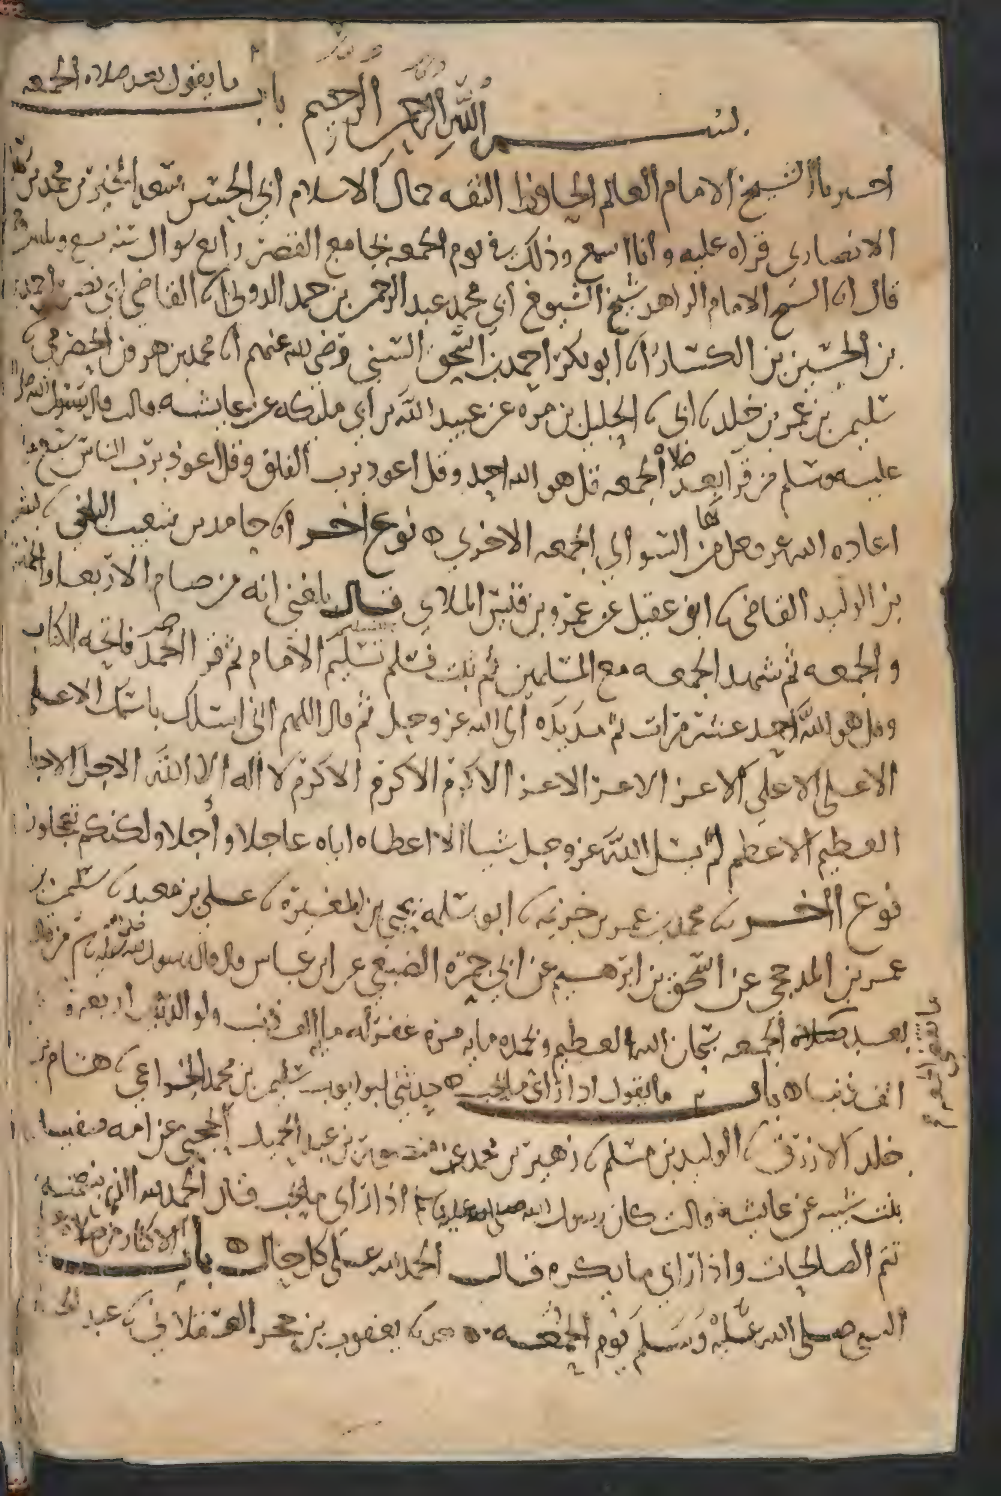 بسم الله الرحمن الرحيم باب ما يقول بعد صلاه الجمعه
اخبرنا الشيخ الامام العالم الحافظ الثقه جمال الاسلام ابي الحسن سعد الخير بن محمد بن
الانصاري قراه عليه وانا اسمع وذلك في يوم الجمعه بجامع القصر رابع شوال سنه تسع
قال انا الشيخ الامام الزاهد شيخ الشيوخ ابي محمد عبد الرحمن بن حمد الدوني انا القاضي ابي نصر احمد
بن الحسين بن الكسار انا ابو بكر احمد بن اسحق السني رضي الله عنهم انا محمد بن هرون الحضرمي
سليمن بن عمر بن خلد ابي الخليل بن مره عن عبيد الله بن ابي مليكه عن عايشه قالت قال رسول الله صلى الله
عليه وسلم من قرا بعد صلاه الجمعه قل هو الله احد وقل اعوذ برب الفلق وقل اعوذ برب الناس سبع
اعاذه الله عز وجل بها من السو الي الجمعه الاخري نوع اخر انا حامد بن شعيب البلخي
بن الوليد القاضي ابو عقيل عن عمرو بن قيس الملاي قال بلغني انه من صام الاربعا والخميس
والجمعه ثم شهد الجمعه مع المسلمين ثم ثبت فسلم تسليم الامام ثم قرا الحمد فاتحه الكتاب
وقل هو الله احد عشر مرات ثم مد يده الى الله عز وجل ثم قال اللهم اني اسلك باسمك الاعلى
الاعلى الاعلى الاعز الاعز الاعز الاكرم الاكرم الاكرم لا اله الا الله الاجل الاجل
العظيم الاعظم لم يسل الله عز وجل شيا الا اعطاه اياه عاجلا واجلا ولكنكم تعجلون
نوع اخر محمد بن عمير بن خزيمه ابو سلمه يحيى بن المغيره علي بن معبد سليمن بن
عمرين المدحجي عن اسحق بن ابرهيم عن ابي جمره الضبعي عن ابن عباس قال قال رسول الله صلى الله عليه وسلم من قال
بعد صلاه الجمعه سبحان الله العظيم وبحمده مايه مره غفر له مايه الف ذنب ولوالديه اربعه و
الف ذنبا باب ما يقول اذا راى ما يحب حدثني ابو ايوب سليمن بن محمد الخزاعي هشام بن
خلد الازرق الوليد بن مسلم زهير بن محمد عن منصور بن عبد الحميد الحجبي عن امه صفيه
بنت شيبه عن عايشه قالت كان رسول الله صلى الله عليه وسلم اذا راى ما يحب قال الحمد لله الذي بنعمته
تتم الصالحات واذا راى ما يكره قال الحمد لله على كل حال باب الاكثار من الصلاه على
النبي صلى الله عليه وسلم يوم الجمعه يعقوب بن حجر العسقلاني عبد